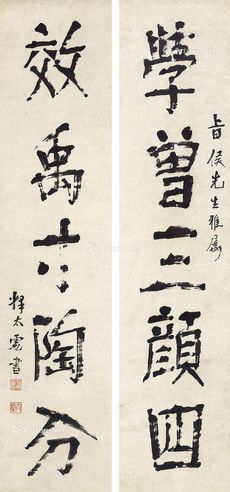 學曾三顏四
旨侯先生雅屬
效禹寸陶分
釋太虛書